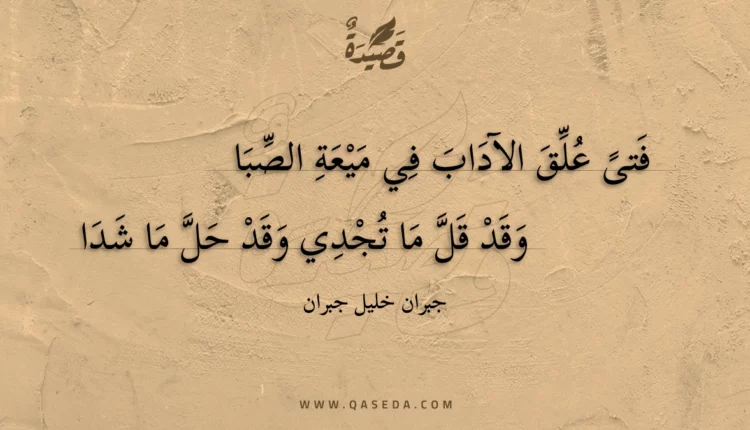 قَصِيدَةٌ
فَتىً عُلِّقَ الآدَابَ فِي مَيْعَةِ الصِّبَا
وَقَدْ قَلَّ مَا تُجْدِي وَقَدْ حَلَّ مَا شَدَا
جبران خليل جبران
WWW.QASEDA.COM